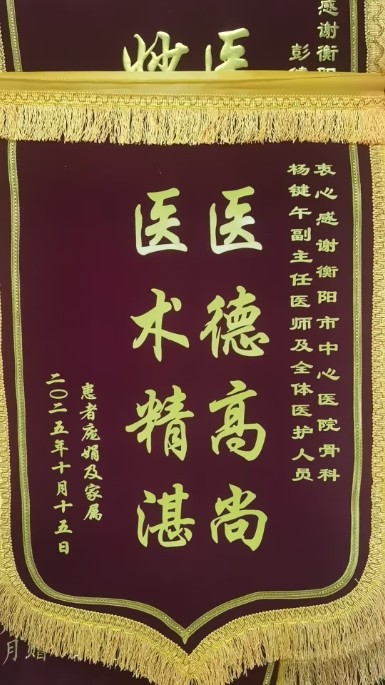 感谢衡阳
彭
医
妙
衷心感谢衡阳市中心医院骨科
杨键午副主任医师及全体医护人员
医德高尚
医术精湛
患者庞娟及家属
二〇二五年十月十五日
月赠